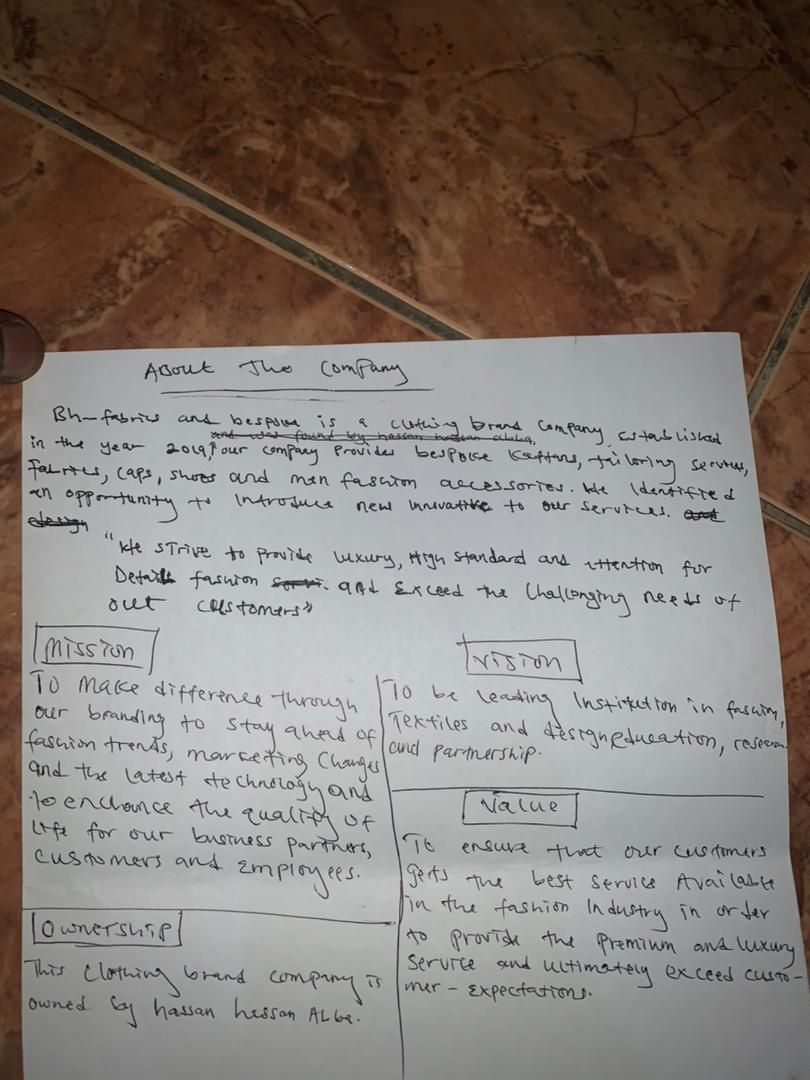 About The Company
Bh-fabrics and bespoke is a clothing brand company, established
and was found by hassan hassan
in the year 2019, our company provides bespoke kaftans, tailoring services,
fabrics, caps, shoes and men fashion accessories. We Identified
an opportunity to introduce new innovative to our services. and
design
"We strive to provide luxury, High standard and attention for
Detail fashion and Exceed the Challenging needs of
out customers"
Mission
To make difference through
our branding to stay ahead of
fashion trends, marketing Changes
and the latest technology and
to enchance the quality of
life for our business partners,
customers and Employees.
Ownership
This clothing brand company is
owned by hassan hassan
Vision
To be leading Institution in fashion,
Textiles and design education, research
and partnership.
Value
To ensure that our customers
gets the best service Available
in the fashion Industry in order
to provide the premium and luxury
Service and ultimately exceed custo-
mer - Expectations.